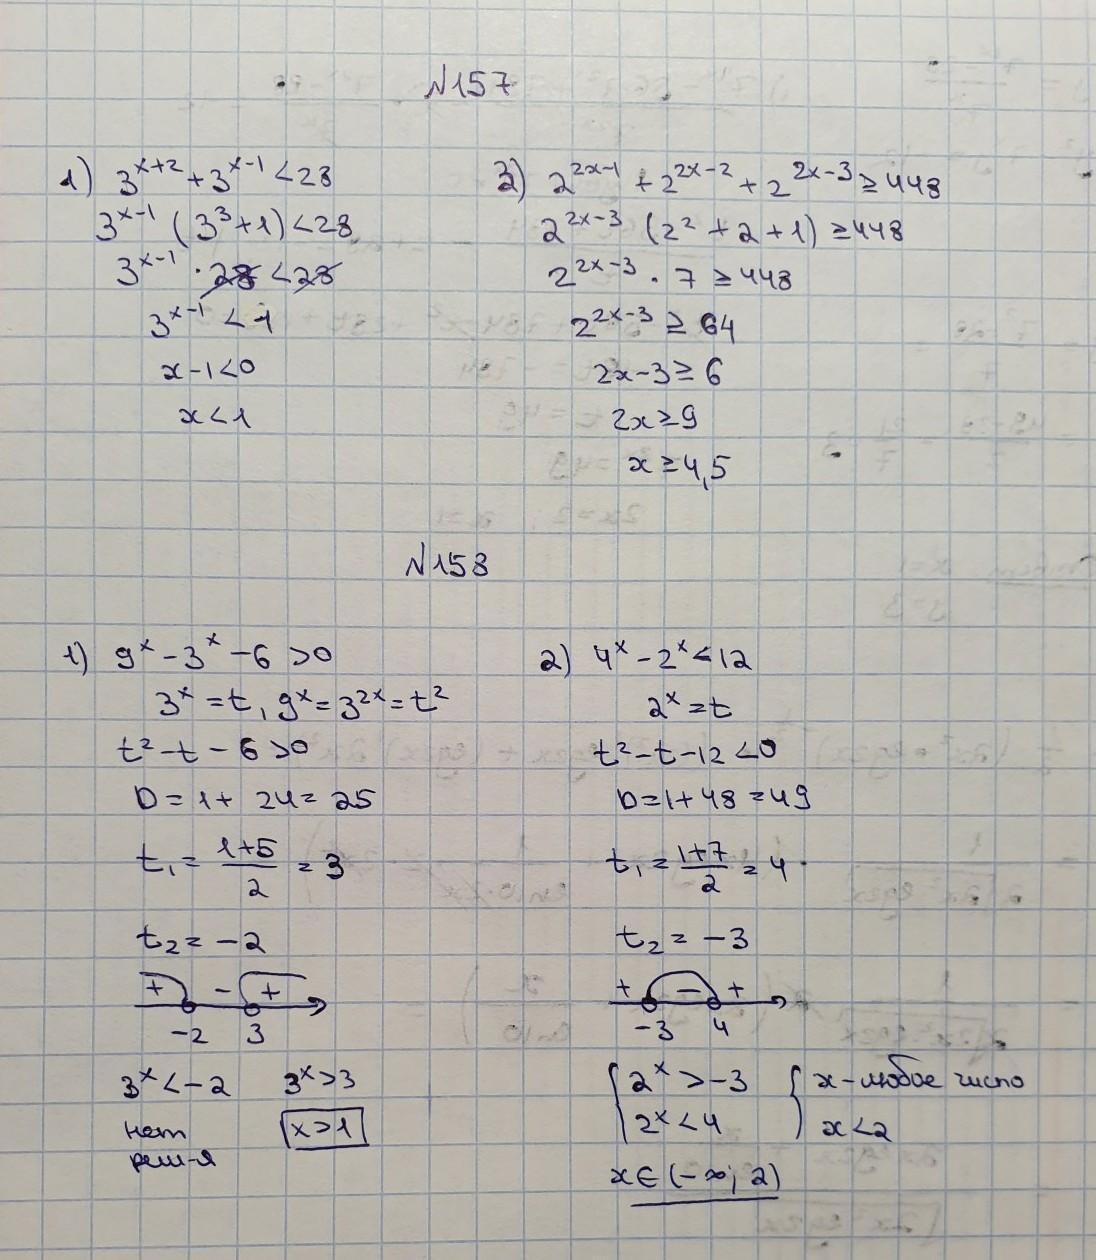 №157
1) 3^{x+2} + 3^{x-1} < 28
3^{x-1} (3^3 + 1) < 28
3^{x-1} · 28 < 28
3^{x-1} < 1
x - 1 < 0
x < 1
3) 2^{2x-1} + 2^{2x-2} + 2^{2x-3} ≥ 448
2^{2x-3} (2^2 + 2 + 1) ≥ 448
2^{2x-3} · 7 ≥ 448
2^{2x-3} ≥ 64
2x - 3 ≥ 6
2x ≥ 9
x ≥ 4,5
№158
1) 9^x - 3^x - 6 > 0
3^x = t, 9^x = 3^{2x} = t^2
t^2 - t - 6 > 0
D = 1 + 24 = 25
t_1 = \frac{1+5}{2} = 3
t_2 = -2
+ - +
-2 3
3^x < -2 3^x > 3
нет x > 1
реш-я
2) 4^x - 2^x < 12
2^x = t
t^2 - t - 12 < 0
D = 1 + 48 = 49
t_1 = \frac{1+7}{2} = 4
t_2 = -3
+ - +
-3 4
{ 2^x > -3 { x - любое число
2^x < 4 x < 2
x ∈ (-∞; 2)